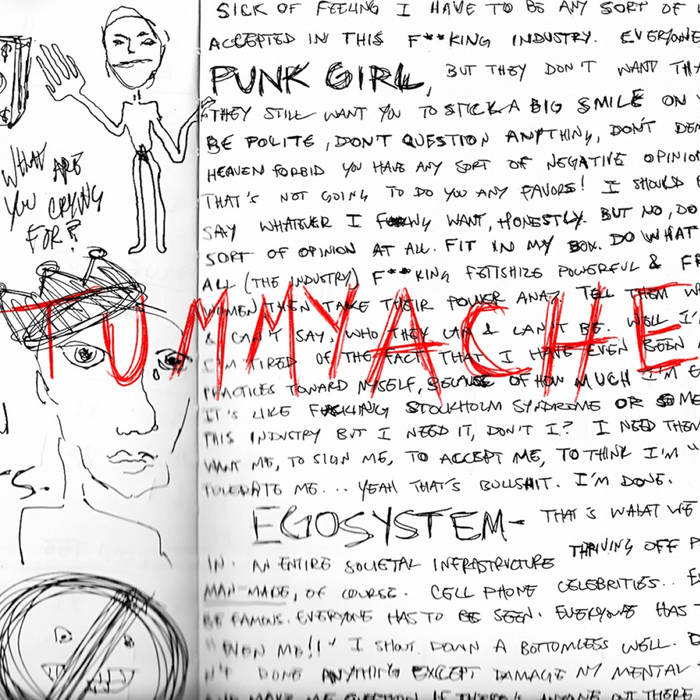 SICK OF FEELING I HAVE TO BE ANY SORT OF
ACCEPTED IN THIS F**KING INDUSTRY. EVERYONE
PUNK GIRL, BUT THEY DON'T WANT THA
THEY STILL WANT YOU TO STICK A BIG SMILE ON
BE POLITE, DON'T QUESTION ANYTHING, DON'T DE
HEAVEN FORBID YOU HAVE ANY SORT OF NEGATIVE OPINION
THAT'S NOT GOING TO DO YOU ANY FAVORS! I SHOULD
SAY WHATEVER I WANT, HONESTLY. BUT NO, DO
SORT OF OPINION AT ALL. FIT IN MY BOX. DO WHAT
ALL (THE INDUSTRY) F**KING FETISHIZE POWERFUL & FR
WOMEN THEN TAKE THEIR POWER AWAY. TELL THEM W
& CAN'T SAY, WHO THEY CAN & CAN'T BE. WELL I'
I'M TIRED OF THE FACT THAT I HAVE EVEN BEEN
PRACTICES TOWARD MYSELF, BECAUSE OF HOW MUCH I'M
IT'S LIKE FUCKING STOCKHOLM SYNDROME OR SOME
THIS INDUSTRY BUT I NEED IT, DON'T I? I NEED THEM
WANT ME, TO SIGN ME, TO ACCEPT ME, TO THINK I'M "
TOLERATE ME... YEAH THAT'S BULLSHIT. I'M DONE.
EGOSYSTEM- THAT'S WHAT WE
IN. AN ENTIRE SOCIETAL INFRASTRUCTURE THRIVING OFF P
MAN-MADE, OF COURSE. CELL PHONE CELEBRITIES.. E
BE FAMOUS. EVERYONE HAS TO BE SEEN. EVERYONE HAS
"EVEN ME!!" I SHOUT DOWN A BOTTOMLESS WELL.
N'T DONE ANYTHING EXCEPT DAMAGE MY MENTAL
MAKE ME QUESTION IF THERE'S ANYONE OUT THERE
WHAT ARE
YOU CRYING
FOR?
S.
TUMMYACHE